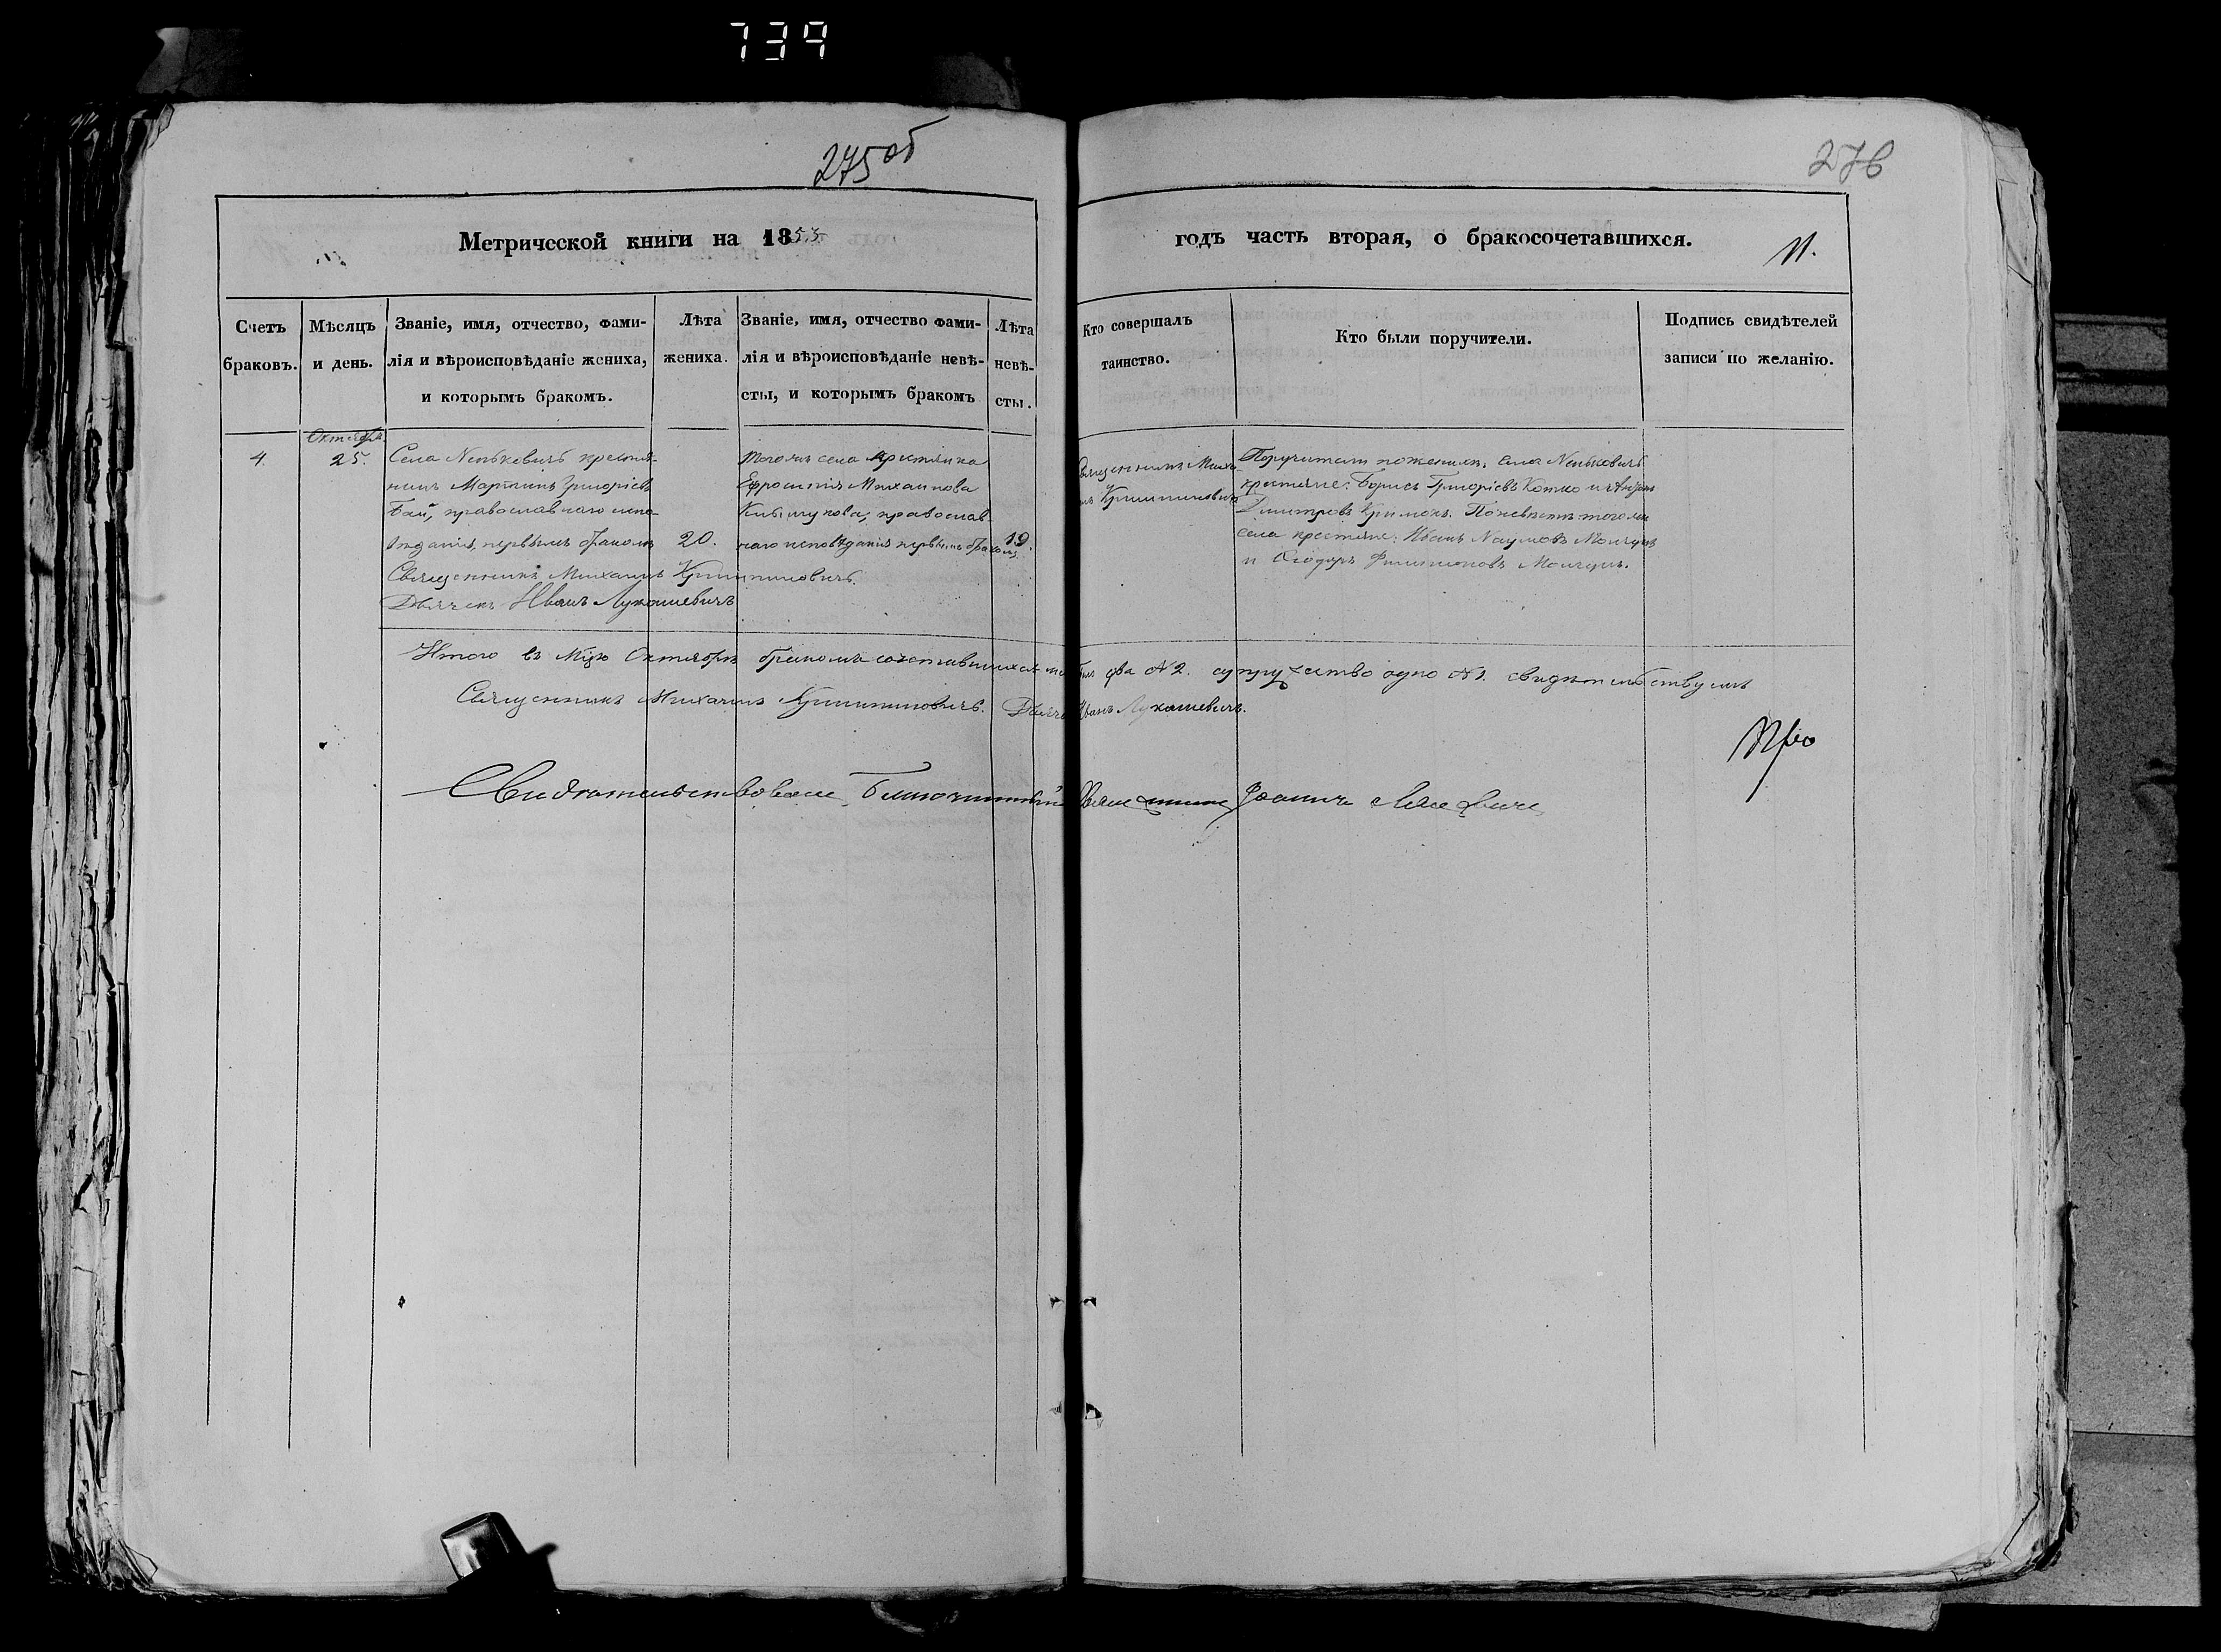 739
275об
276
Метрической книги на 1853
годъ часть вторая, о бракосочетавшихся.
Счетъ браковъ.
Мѣсяцъ и день.
Званіе, имя, отчество, фами-
лія и вѣроисповѣданіе жениха,
и которымъ бракомъ.
Лѣта
жениха.
Званіе, имя, отчество фами-
лія и вѣроисповѣданіе невѣ-
сты, и которымъ бракомъ
Лѣта
невѣ-
сты.
Кто совершалъ
таинство.
Кто были поручители.
Подпись свидѣтелей
записи по желанію.
4.
Октября
25.
Села Неньковичъ крестья-
нинъ Мартинъ Григоріевъ
православнаго испо-
вѣданія, первымъ бракомъ
20.
Тогожъ села крестянка
Ефросинія Михаилова
православ-
наго исповѣданія первымъ бракомъ.
19.
Священникъ Михаилъ
Дьячекъ Иванъ Лукашевичъ
Священникъ Миха-
илъ
Поручители по женихѣ: села Неньковичъ
крестяне: Борисъ Григоріевъ Котко и
Димитровъ По невѣстѣ: тогожъ
села крестяне: Иванъ Наумовъ
и Ѳеодоръ Филимоновъ
Итого въ Мцѣ Октябрѣ бракомъ сочетавшихся было два №2. супружество одно №1. свидѣтельствуемъ
Священникъ Михаилъ Дьячекъ Иванъ Лукашевичъ.
Свидѣтельствовалъ Благочинный Священникъ Іоаннъ